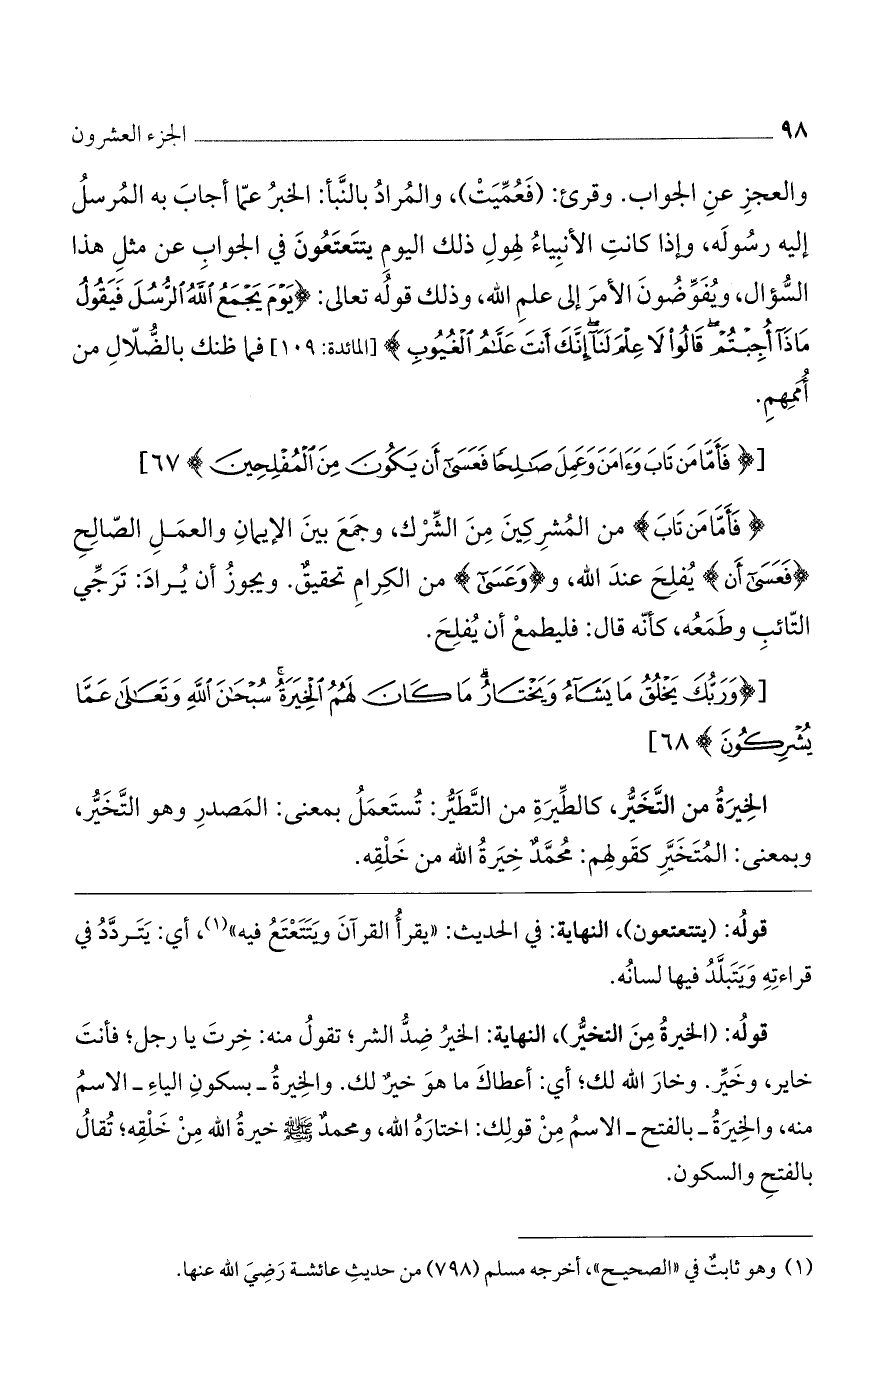 ٩٨ الجزء العشرون
والعجزِ عنِ الجواب. وقرئ: (فَعُمِّيَتْ)، والمُرادُ بالنَّبأ: الخبرُ عمّا أجابَ به المُرسلُ
إليه رسُولَه، وإذا كانتِ الأنبِياءُ لِهولِ ذلك اليومِ يتتَعتَعُونَ في الجوابِ عن مثلِ هذا
السُّؤال، ويُفَوِّضُونَ الأمرَ إلى علمِ الله، وذلك قولُه تعالى: ﴿يَوْمَ يَجْمَعُ ٱللَّهُ ٱلرُّسُلَ فَيَقُولُ
مَاذَآ أُجِبْتُمْ ۖ قَالُوا۟ لَا عِلْمَ لَنَآ ۖ إِنَّكَ أَنتَ عَلَّـٰمُ ٱلْغُيُوبِ﴾ [المائدة: ١٠٩] فما ظنك بالضُّلّالِ من
أُمَمِهِم.
[﴿فَأَمَّا مَن تَابَ وَءَامَنَ وَعَمِلَ صَـٰلِحًا فَعَسَىٰٓ أَن يَكُونَ مِنَ ٱلْمُفْلِحِينَ﴾ ٦٧]
﴿فَأَمَّا مَن تَابَ﴾ من المُشرِكِينَ مِنَ الشِّرْك، وجمَعَ بينَ الإيمانِ والعمَلِ الصّالِحِ
﴿فَعَسَىٰٓ أَن﴾ يُفلِحَ عندَ الله، و﴿وَعَسَىٰٓ﴾ من الكرامِ تحقيقٌ. ويجوزُ أن يُرادَ: تَرَجِّي
التّائبِ وطَمَعُه، كأنّه قال: فليطمعْ أن يُفلِحَ.
[﴿وَرَبُّكَ يَخْلُقُ مَا يَشَآءُ وَيَخْتَارُ ۗ مَا كَانَ لَهُمُ ٱلْخِيَرَةُ ۚ سُبْحَـٰنَ ٱللَّهِ وَتَعَـٰلَىٰ عَمَّا
يُشْرِكُونَ﴾ ٦٨]
الخِيرَةُ من التَّخَيُّر، كالطِّيرَةِ من التَّطَيُّر: تُستَعمَلُ بمعنى: المَصدرِ وهو التَّخَيُّر،
وبمعنى: المُتَخَيَّرِ كقَولِهم: مُحمَّدٌ خِيَرَةُ الله من خَلْقِه.
قولُه: (يتتعتعون)، النهاية: في الحديث: «يقرأُ القرآنَ ويَتَتَعْتَعُ فيه»(١)، أي: يَتَردَّدُ في
قراءتِهِ وَيَتَبلَّدُ فيها لسانُه.
قولُه: (الخيرةُ مِنَ التخيُّر)، النهاية: الخيرُ ضِدُّ الشر؛ تقولُ منه: خِرتَ يا رجل؛ فأنتَ
خاير، وخَيِّر. وخارَ الله لك؛ أي: أعطاكَ ما هوَ خيرٌ لك. والخِيرةُ ـ بسكونِ الياءِ ـ الاسمُ
منه، والخِيَرَةُ ـ بالفتح ـ الاسمُ مِنْ قولِك: اختارَهُ الله، ومحمدٌ ﷺ خيرةُ الله مِنْ خَلْقِه؛ تُقالُ
بالفتحِ والسكون.
(١) وهو ثابتٌ في «الصحيح»، أخرجه مسلم (٧٩٨) من حديثِ عائشة رَضِيَ الله عنها.